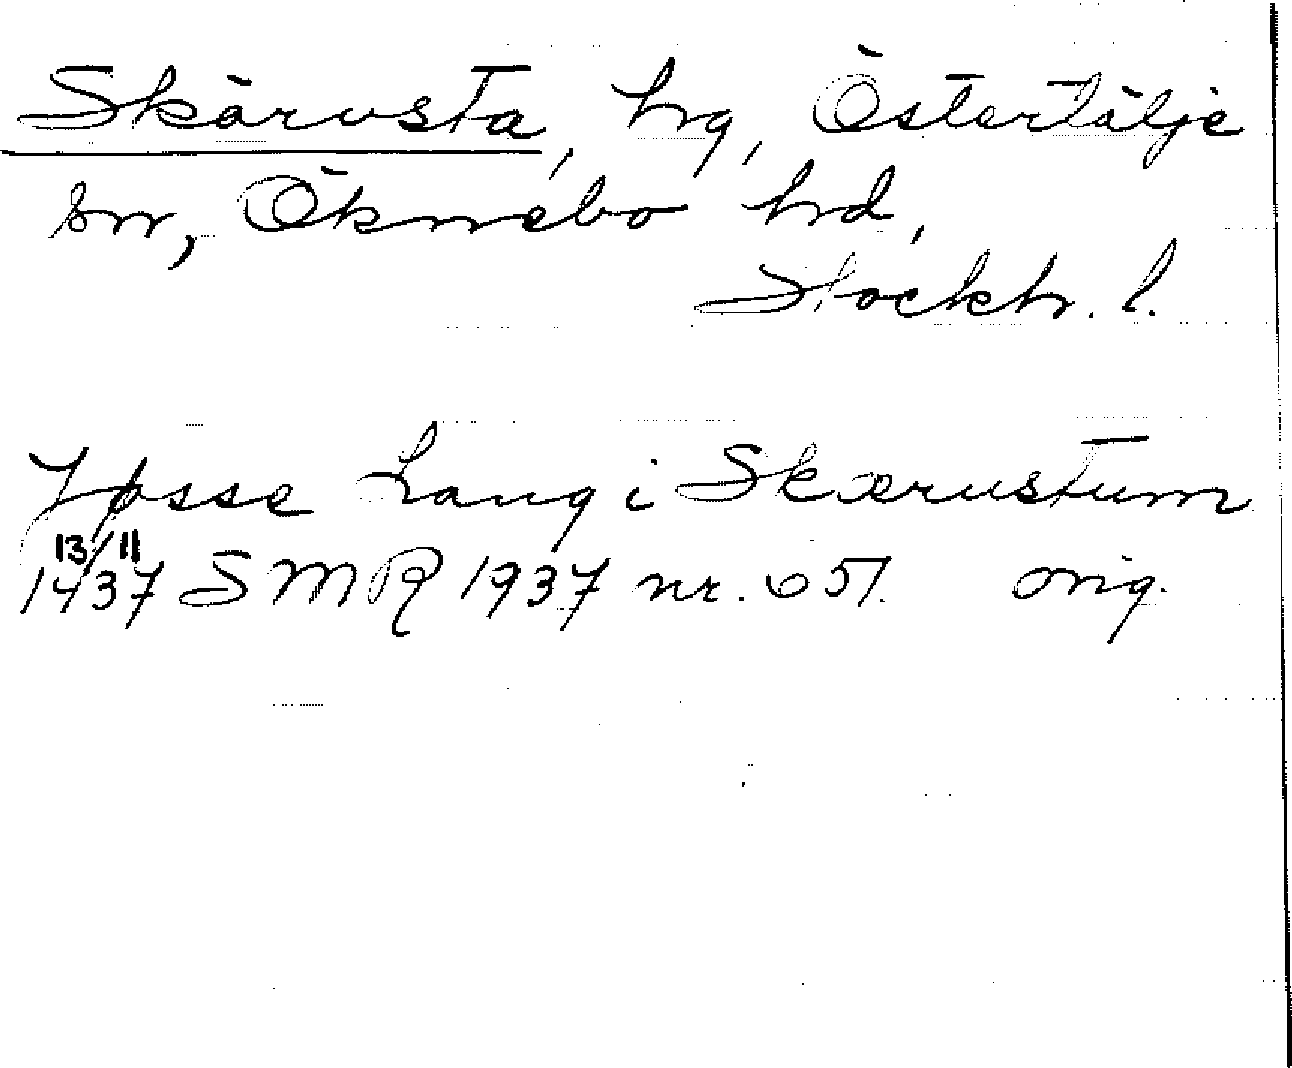 Skärvsta, hg, Östertälje
sn, Öknebo hd,
Stockh. l.
Jøsse Lang i Skærustum
13/11
1437 SMR 1937 nr. 651. orig.